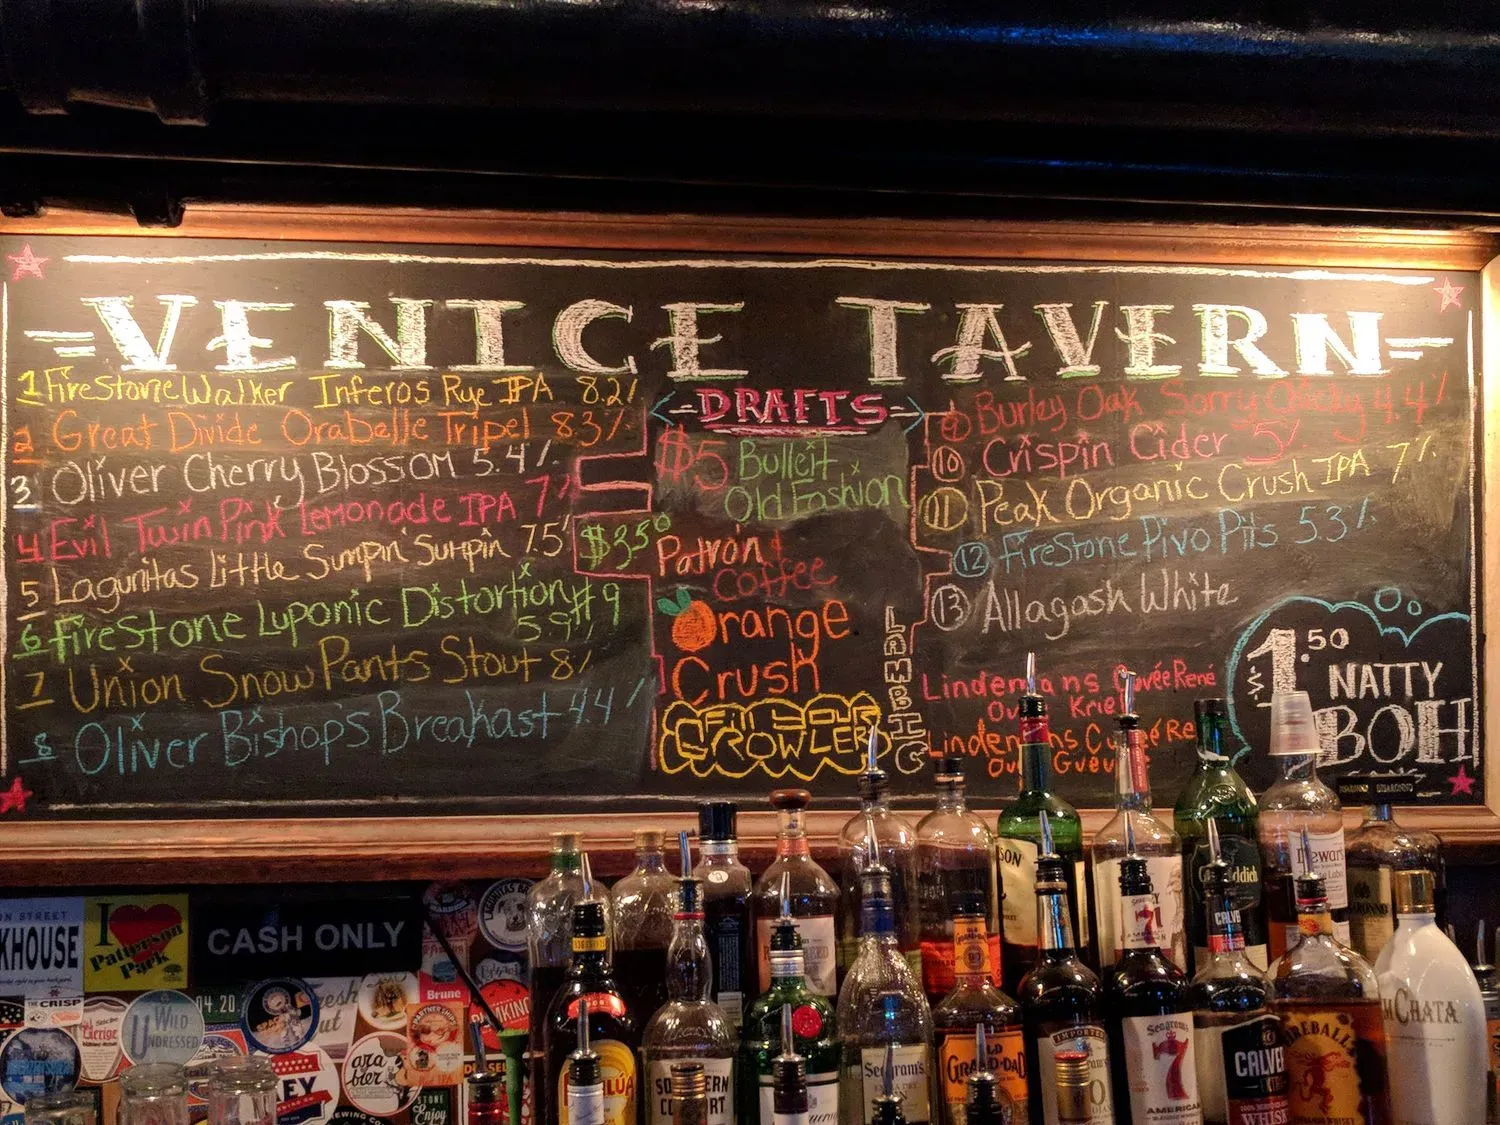 VENICE TAVERN
1 FireStone Walker Inferos Rye IPA 8.2%
2 Great Divide Orabelle Tripel 8.3%
3 Oliver Cherry Blossom 5.4%
4 Evil Twin Pink Lemonade IPA 7%
5 Lagunitas Little Sumpin' Sumpin 7.5%
6 FireStone Luponic Distortion #9
5.9%
7 Union Snow Pants Stout 8%
8 Oliver Bishops Breakfast 4.4%
DRAFTS
$5 Bulleit
Old Fashion
$3.50
Patrón
Coffee
Orange
Crush
FILL OUR
GROWLERS
LAMBIC
9 Burley Oak Sorry Chicky 4.4%
10 Crispin Cider 5%
11 Peak Organic Crush IPA 7%
12 FireStone Pivo Pils 5.3%
13 Allagash White
Lindemans Cuvée René
Oude Kriek
Lindemans Cuvée Re
Oude Gueuze
$1.50
NATTY
BOH
CASH ONLY
N STREET
KHOUSE
I
Patterson
Park
THE CRISP
WILD
UNDRESSED
04.20
LAGUNITAS
Brune
ara
bier
IPA
STONE
Enjoy
KEY
KAHLÚA
SOUTHERN
COMFORT
Seagram's
OLD
GRAND-DAD
IMPORTED
SON
Seagram's
7
AMERICAN
7
CALVE
CALVER
WHISK
FIREBALL
Dewar's
DISARONNO
DISARONNO
ddich
CHATA